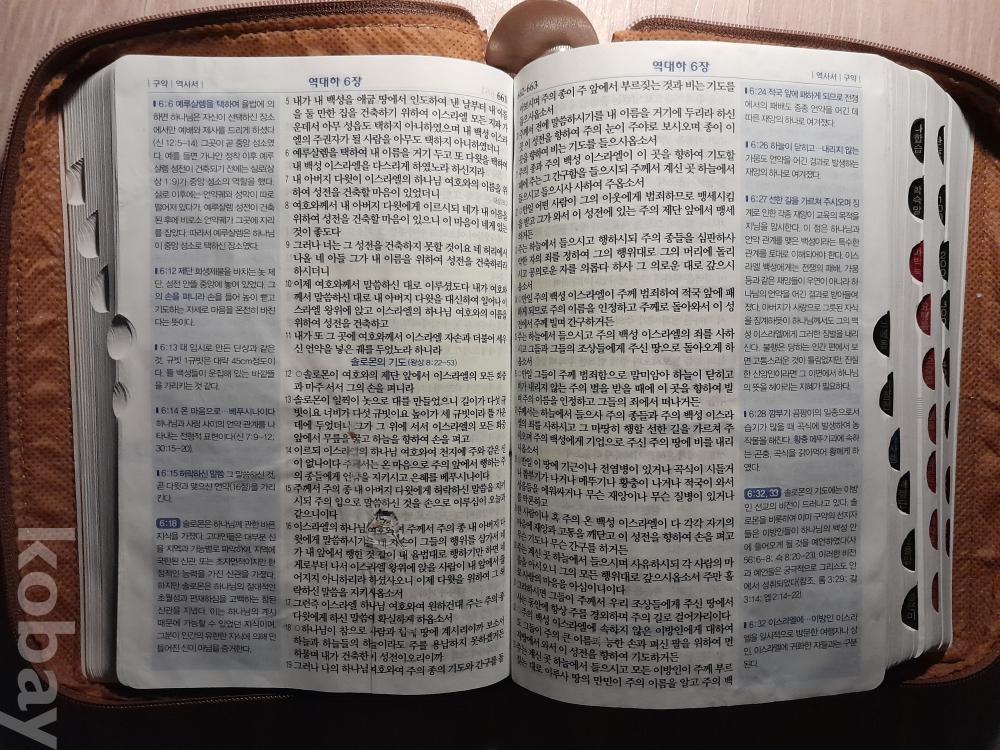 구약 | 역사서
역대하 6장
661
6:6 예루살렘을 택하여 율법에 의
하면 하나님은 자신이 선택하신 장소
에서만 예배와 제사를 드리게 하셨다
(신 12:5-14). 그곳이 곧 중앙 성소였
다. 예를 들면 가나안 정착 이후 예루
살렘 성전이 건축되기 전에는 실로(삼
상 1:9)가 중앙 성소의 역할을 했다.
실로 이후에는 언약궤와 성막이 따로
떨어져 있다가, 예루살렘 성전이 건축
된 후에 비로소 언약궤가 그곳에 자리
를 잡았다. 따라서 예루살렘은 하나님
이 중앙 성소로 택하신 장소였다.
6:12 제단 희생제물을 바치는 놋 제
단. 성전 안뜰 중앙에 놓여 있었다. 그
의 손을 펴니라 손을 들어 높이 뻗고
기도하는 자세로 마음을 온전히 바친
다는 뜻이다.
6:13 대 임시로 만든 단상과 같은
것. 규빗 1규빗은 대략 45cm정도이
다. 뜰 백성들이 운집해 있는 바깥뜰
을 가리키는 것 같다.
6:14 온 마음으로…베푸시나이다
하나님과 사람 사이의 언약 관계를 나
타내는 전형적 표현이다(신 7:9-12;
30:15-20).
6:15 허락하신 말씀 그 말씀하신 것,
곧 다윗과 맺으신 언약(16절)을 가리
킨다.
6:18 솔로몬은 하나님에 관한 바른
지식을 가졌다. 고대인들은 대부분 신
을 지역과 기능별로 파악하여, 지역에
국한된 신관 또는 초자연적이지만 한
정적인 능력을 가진 신관을 가졌다.
하지만 솔로몬은 하나님의 절대적인
초월성과 편재하심을 고백하는 참된
신관을 지녔다. 이는 하나님의 계시
때문에 가능할 수 있었던 지식이며,
그분이 인간의 유한한 지식에 의해 만
들어진 신이 아님을 증거한다.
5 내가 내 백성을 애굽 땅에서 인도하여 낸 날부터 내 이름
을 둘 만한 집을 건축하기 위하여 이스라엘 모든 지파 가
운데서 아무 성읍도 택하지 아니하였으며 내 백성 이스라
엘의 주권자가 될 사람을 아무도 택하지 아니하였더니
6 예루살렘을 택하여 내 이름을 거기 두고 또 다윗을 택하여
내 백성 이스라엘을 다스리게 하였노라 하신지라
7 내 아버지 다윗이 이스라엘의 하나님 여호와의 이름을 위
하여 성전을 건축할 마음이 있었더니
8 여호와께서 내 아버지 다윗에게 이르시되 네가 내 이름을
위하여 성전을 건축할 마음이 있으니 이 마음이 네게 있는
것이 좋도다
9 그러나 너는 그 성전을 건축하지 못할 것이요 네 허리에서
나올 네 아들 그가 내 이름을 위하여 성전을 건축하리라
하시더니
10 이제 여호와께서 말씀하신 대로 이루셨도다 내가 여호와
께서 말씀하신 대로 내 아버지 다윗을 대신하여 일어나 이
스라엘 왕위에 앉고 이스라엘의 하나님 여호와의 이름을
위하여 성전을 건축하고
11 내가 또 그 곳에 여호와께서 이스라엘 자손과 더불어 세우
신 언약을 넣은 궤를 두었노라 하니라
솔로몬의 기도(왕상 8:22-53)
12 ○솔로몬이 여호와의 제단 앞에서 이스라엘의 모든 회중
과 마주 서서 그의 손을 펴니라
13 솔로몬이 일찍이 놋으로 대를 만들었으니 길이가 다섯 규
빗이요 너비가 다섯 규빗이요 높이가 세 규빗이라 뜰 가운
데에 두었더니 그가 그 위에 서서 이스라엘의 모든 회중
앞에서 무릎을 꿇고 하늘을 향하여 손을 펴고
14 이르되 이스라엘의 하나님 여호와여 천지에 주와 같은 신
이 없나이다 주께서는 온 마음으로 주의 앞에서 행하는 주
의 종들에게 언약을 지키시고 은혜를 베푸시나이다
15 주께서 주의 종 내 아버지 다윗에게 허락하신 말씀을 지키
시되 주의 입으로 말씀하신 것을 손으로 이루심이 오늘과
같으니이다
16 이스라엘의 하나님 여호와여 주께서 주의 종 내 아버지 다
윗에게 말씀하시기를 네 자손이 그들의 행위를 삼가서 네
가 내 앞에서 행한 것 같이 내 율법대로 행하기만 하면 네
게로부터 나서 이스라엘 왕위에 앉을 사람이 내 앞에서 끊
어지지 아니하리라 하셨사오니 이제 다윗을 위하여 그 허
락하신 말씀을 지키시옵소서
17 그런즉 이스라엘 하나님 여호와여 원하건대 주는 주의 종
다윗에게 하신 말씀이 확실하게 하옵소서
18 ○하나님이 참으로 사람과 함께 땅에 계시리이까 보소서
하늘과 하늘들의 하늘이라도 주를 용납하지 못하겠거든
하물며 내가 건축한 이 성전이오리이까
19 그러나 나의 하나님 여호와여 주의 종의 기도와 간구를 돌
663
역대하 6장
역사서 | 구약
보시며 주의 종이 주 앞에서 부르짖는 것과 비는 기도를
들으시옵소서
주께서 전에 말씀하시기를 내 이름을 거기에 두리라 하신
곳 이 성전을 향하여 주의 눈이 주야로 보시오며 종이 이
곳을 향하여 비는 기도를 들으시옵소서
주의 종과 주의 백성 이스라엘이 이 곳을 향하여 기도할
때에 주는 그 간구함을 들으시되 주께서 계신 곳 하늘에서
들으시고 들으시사 사하여 주옵소서
만일 어떤 사람이 그의 이웃에게 범죄하므로 맹세시킴
을 받고 그가 와서 이 성전에 있는 주의 제단 앞에서 맹세
하거든
주는 하늘에서 들으시고 행하시되 주의 종들을 심판하사
악한 자의 죄를 정하여 그의 행위대로 그의 머리에 돌리
시고 공의로운 자를 의롭다 하사 그 의로운 대로 갚으시
옵소서
만일 주의 백성 이스라엘이 주께 범죄하여 적국 앞에 패
하게 되므로 주의 이름을 인정하고 주께로 돌아와서 이 성
전에서 주께 빌며 간구하거든
주는 하늘에서 들으시고 주의 백성 이스라엘의 죄를 사하
시고 그들과 그들의 조상들에게 주신 땅으로 돌아오게 하
옵소서
만일 그들이 주께 범죄함으로 말미암아 하늘이 닫히고
비가 내리지 않는 주의 벌을 받을 때에 이 곳을 향하여 빌
며 주의 이름을 인정하고 그들의 죄에서 떠나거든
주께서는 하늘에서 들으사 주의 종들과 주의 백성 이스라
엘의 죄를 사하시고 그 마땅히 행할 선한 길을 가르쳐 주
시오며 주의 백성에게 기업으로 주신 주의 땅에 비를 내리
시옵소서
만일 이 땅에 기근이나 전염병이 있거나 곡식이 시들거
나 깜부기가 나거나 메뚜기나 황충이 나거나 적국이 와서
성읍들을 에워싸거나 무슨 재앙이나 무슨 질병이 있거나
를 막론하고
한 사람이나 혹 주의 온 백성 이스라엘이 다 각각 자기의
마음에 재앙과 고통을 깨닫고 이 성전을 향하여 손을 펴고
무슨 기도나 무슨 간구를 하거든
주는 계신 곳 하늘에서 들으시며 사유하시되 각 사람의 마
음을 아시오니 그의 모든 행위대로 갚으시옵소서 주만 홀
로 사람의 마음을 아심이니이다
그리하시면 그들이 주께서 우리 조상들에게 주신 땅에서
사는 동안에 항상 주를 경외하며 주의 길로 걸어가리이다
주의 백성 이스라엘에 속하지 않은 이방인에게 대하여
도 그들이 주의 큰 이름과 능한 손과 펴신 팔을 위하여 먼
지방에서 와서 이 성전을 향하여 기도하거든
주는 계신 곳 하늘에서 들으시고 모든 이방인이 주께 부르
짖는 대로 이루사 땅의 만민이 주의 이름을 알고 주의 백
6:24 적국 앞에 패하게 되므로 전쟁
에서의 패배도 종종 언약을 어긴 데
따른 재앙의 하나로 여겨졌다.
6:26 하늘이 닫히고…내리지 않는
가뭄도 언약을 어긴 결과로 발생하는
재앙의 하나로 여겨졌다.
6:27 선한 길을 가르쳐 주시오며 징
계로 인한 각종 재앙이 교육의 목적을
지님을 암시한다. 이 점은 하나님과
언약 관계를 맺은 백성이라는 특수한
관계를 토대로 이해되어야 한다. 이스
라엘 백성에게는 전쟁의 패배, 가뭄
등과 같은 재앙들이 우연이 아니라 하
나님의 언약을 어긴 결과로 받아들여
졌다. 아버지가 사랑으로 그릇된 자식
을 징계하듯이 하나님께서도 그의 백
성 이스라엘에게 그러한 징벌을 내리
신다. 불행은 당하는 인간 편에서 보
면 고통스러운 것이 틀림없지만, 진실
한 신앙인이라면 그 이면에서 하나님
의 뜻을 헤아리는 지혜가 필요하다.
6:28 깜부기 곰팡이의 일종으로서
습기가 많을 때 곡식에 발생하여 농
작물을 해친다. 황충 메뚜기과에 속하
는 곤충. 곡식을 갉아먹어 황폐케 하
였다.
6:32, 33 솔로몬의 기도에는 이방
인 선교의 비전이 드러나고 있다. 솔
로몬을 비롯하여 이미 구약의 선지자
들은 이방인들이 하나님의 백성 안
에 들어오게 될 것을 예언하였다(사
56:6-8; 슥 8:20-23). 이러한 비전
과 예언들은 궁극적으로 그리스도 안
에서 성취되었다(참조, 롬 3:29; 갈
3:14; 엡 2:14-22).
6:32 이스라엘에…이방인 이스라
엘을 일시적으로 방문한 여행자나 상
인, 이스라엘에 귀화한 자들과는 구분
된다.
kobay